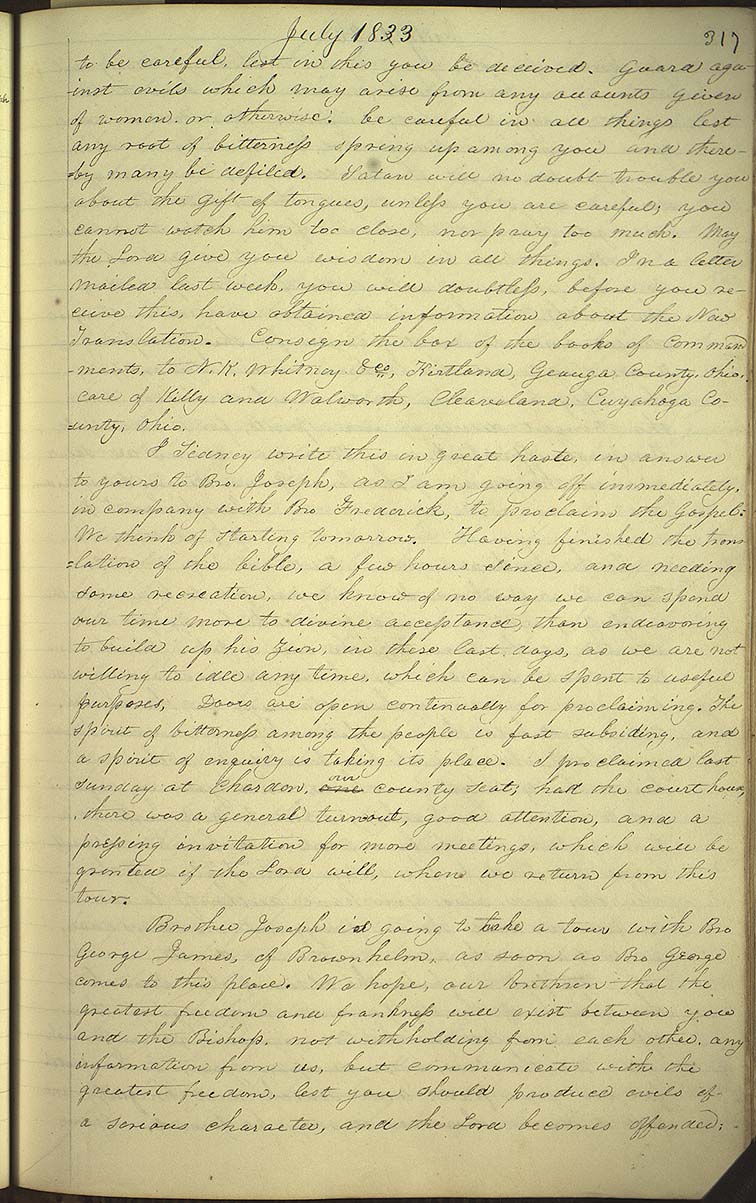 July 1833 317
to be careful, lest in this you be deceived. Guard aga-
-inst evils which may arise from any accounts given
of women, or otherwise: be careful in all things lest
any root of bitterness spring up among you and there-
-by many be defiled. Satan will no doubt trouble you
about the gift of tongues, unless you are careful; you
cannot watch him too close, nor pray too much. May
the Lord give you wisdom in all things. In a letter
mailed last week, you will doubtless, before you re-
ceive this, have obtained information about the New
Translation. Consign the box of the books of command
-ments, to N. K. Whitney & co., Kirtland, Geauga County, Ohio,
care of Killy and Walworth, Cleaveland, Cuyahoga Co-
-unty, Ohio.
I Sidney write this in great haste, in answer
to yours to Bro. Joseph, as I am going off immediately,
in company with Bro Frederick, to proclaim the Gospel:
We think of starting tomorrow. Having finished the trans
-lation of the bible, a few hours since, and needing
some recreation, we know of no way we can spend
our time more to divine acceptance, than endeavoring
to build up his Zion, in these last days, as we are not
willing to idle any time, which can be spent to useful
purposes, Doors are open continually for proclaiming. The
spirit of bitterness among the people is fast subsiding, and
a spirit of enquiry is taking its place. I proclaimed last
Sunday at Chardon, one our county seat; had the court house,
there was a general turnout, good attention, and a
pressing invitation for more meetings, which will be
granted if the Lord will, when we return from this
tour.
Brother Joseph is going to take a tour with Bro
George James, of Brownhelm, as soon as Bro George
comes to this place. We hope, our brethren that the
greatest freedom and frankness will exist between you
and the Bishop, not withholding from each other, any
information from us, but communicate with the
greatest freedom, lest you should produce evils of
a serious character, and the Lord becomes offended: